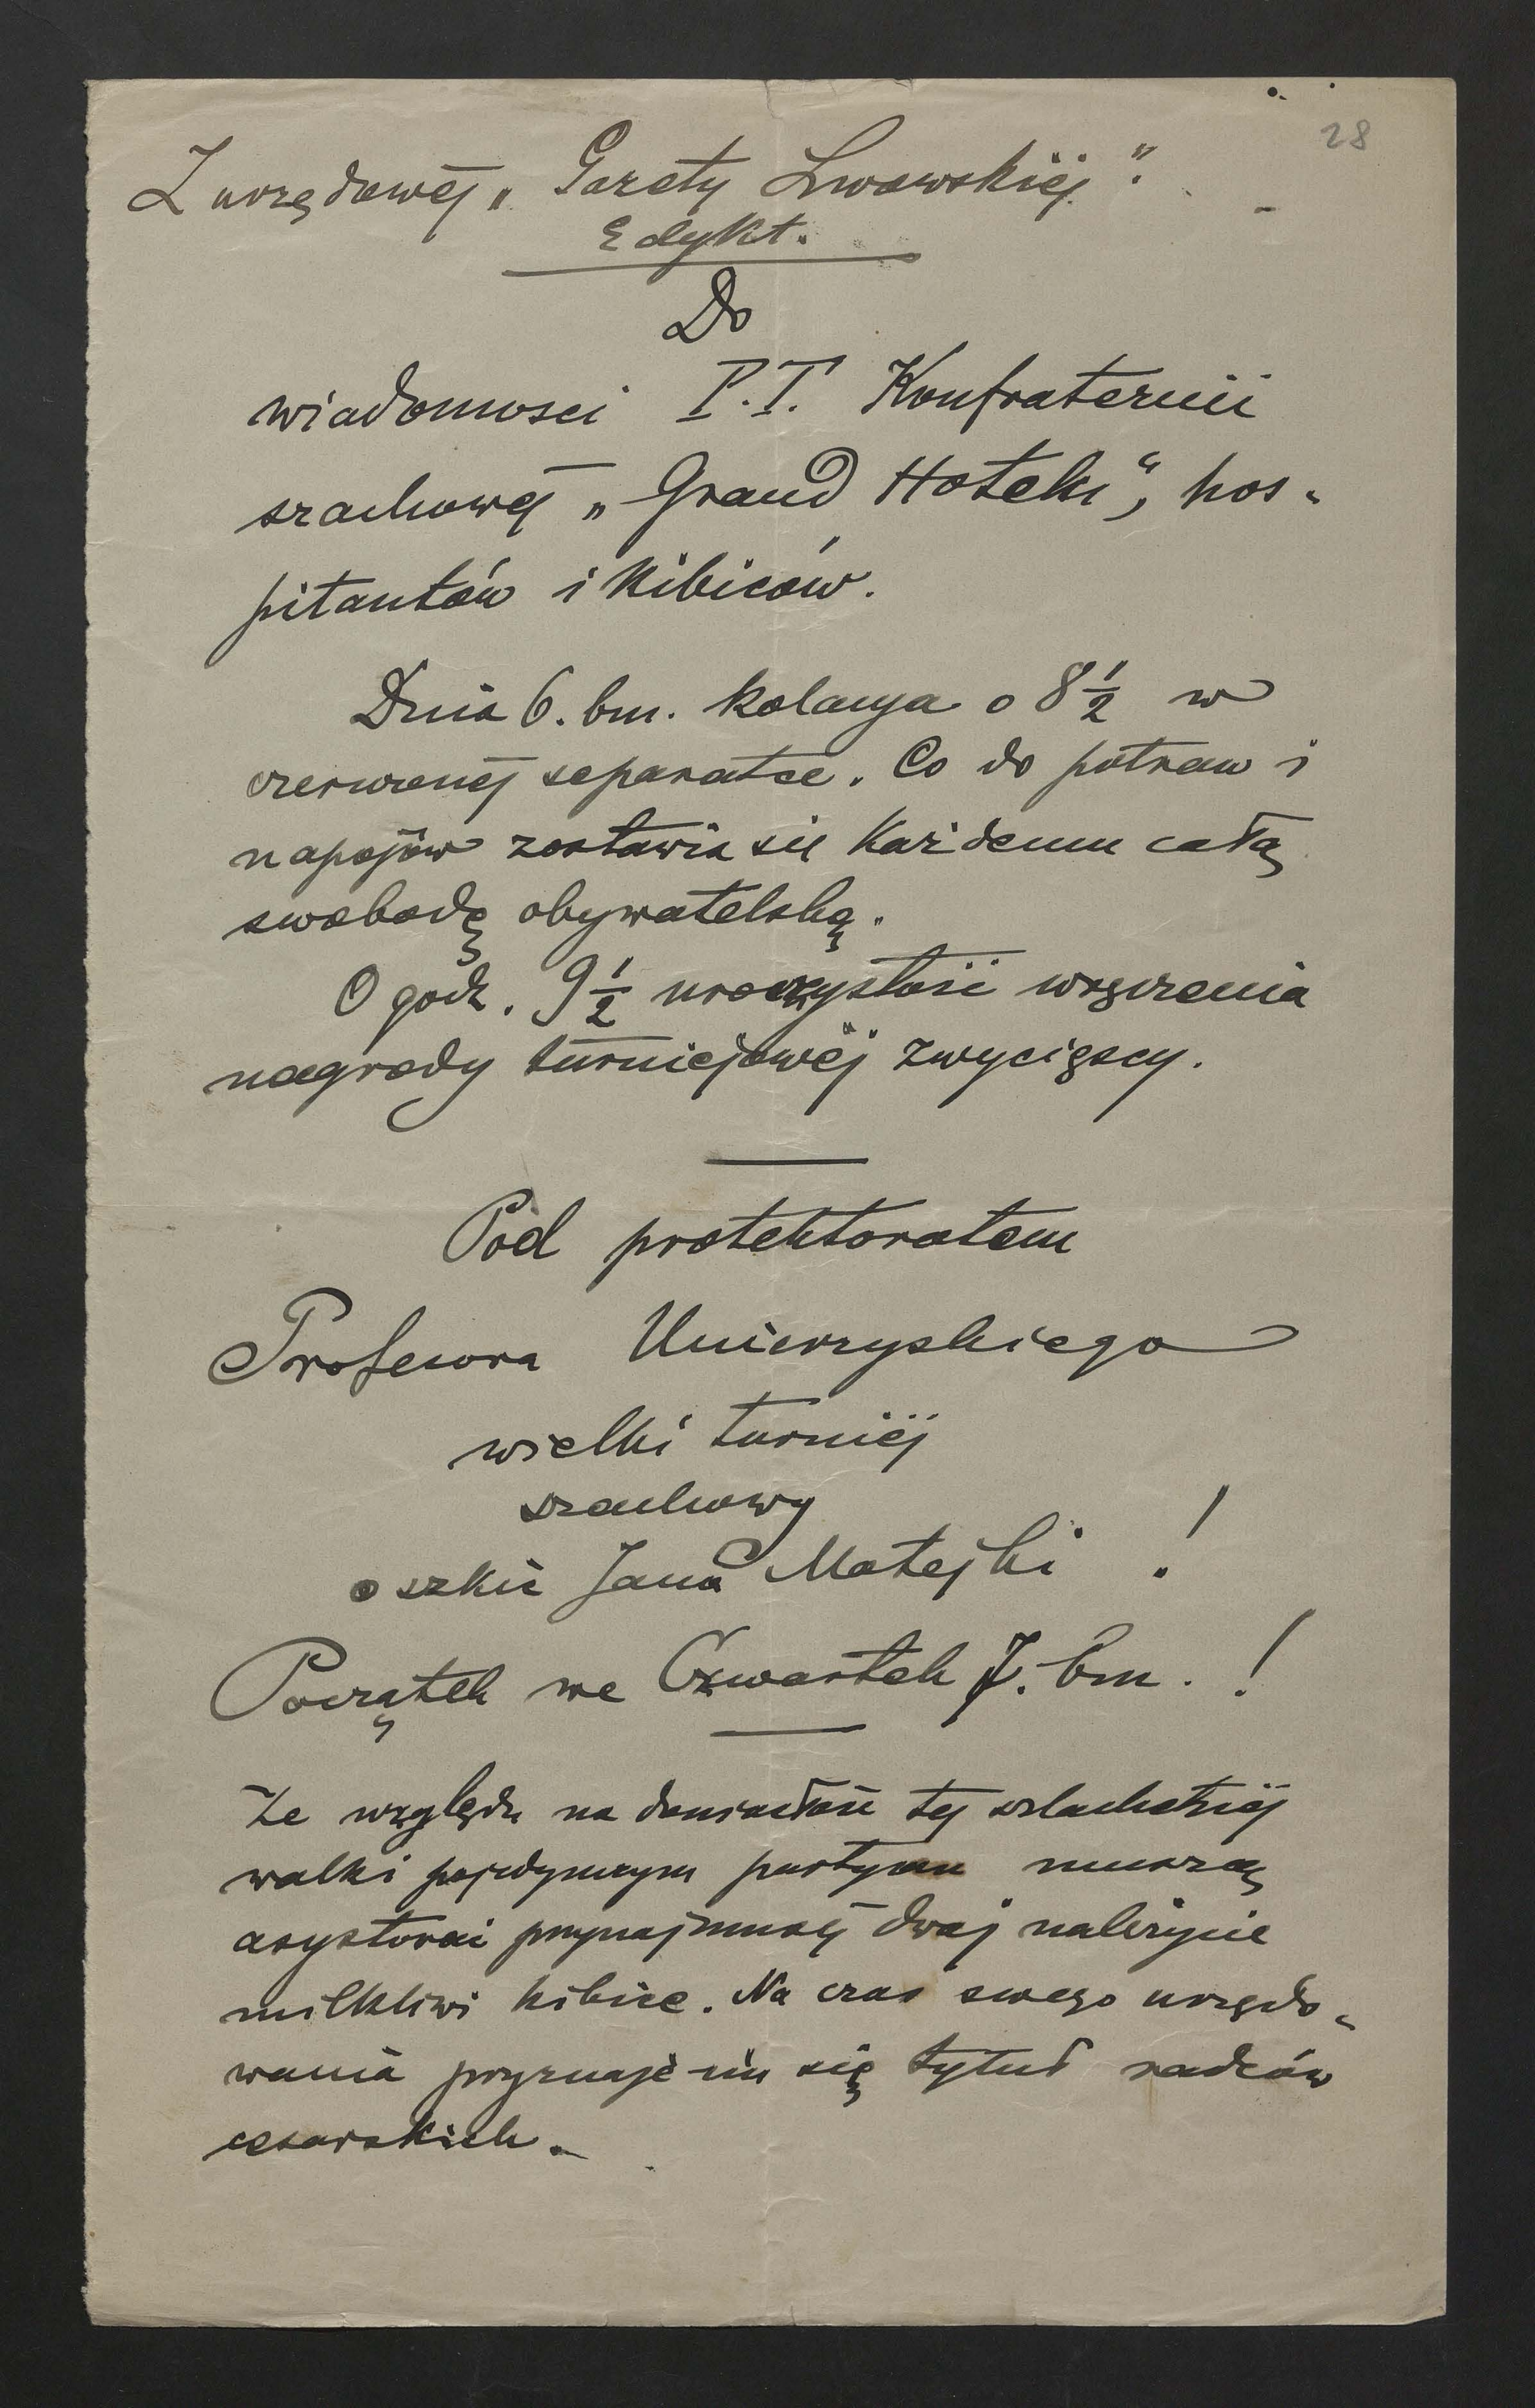 28
Z urzędowej „Gazety Lwowskiéj".
Edykt.
Do
wiadomosci P.T. Konfraternii
szachowéj „Grand Hotelu", hos-
pitantów i Kibiców.
Dnia 6. bm. kolacya o 8½ w
czerwonéj separatce. Co do potraw i
napojów zostawia się Każdemu całą
swobodę obywatelską.
O godz. 9½ uroczystość wręczenia
nagrody turniejowéj zwycięscy.
Pod protektoratem
Profesora Unierzyskiego
wielki turniéj
szachowy
o szkic Jana Matejki !
Początek we Czwartek 7. bm. !
Ze względu na doniosłość téj szlachetnéj
walki pojedynczym partyom muszą
asystować przynajmniéj dwaj należycie
milkliwi kibice. Na czas swego urzędo-
wania przyznaje im się tytuł radców
cesarskich.